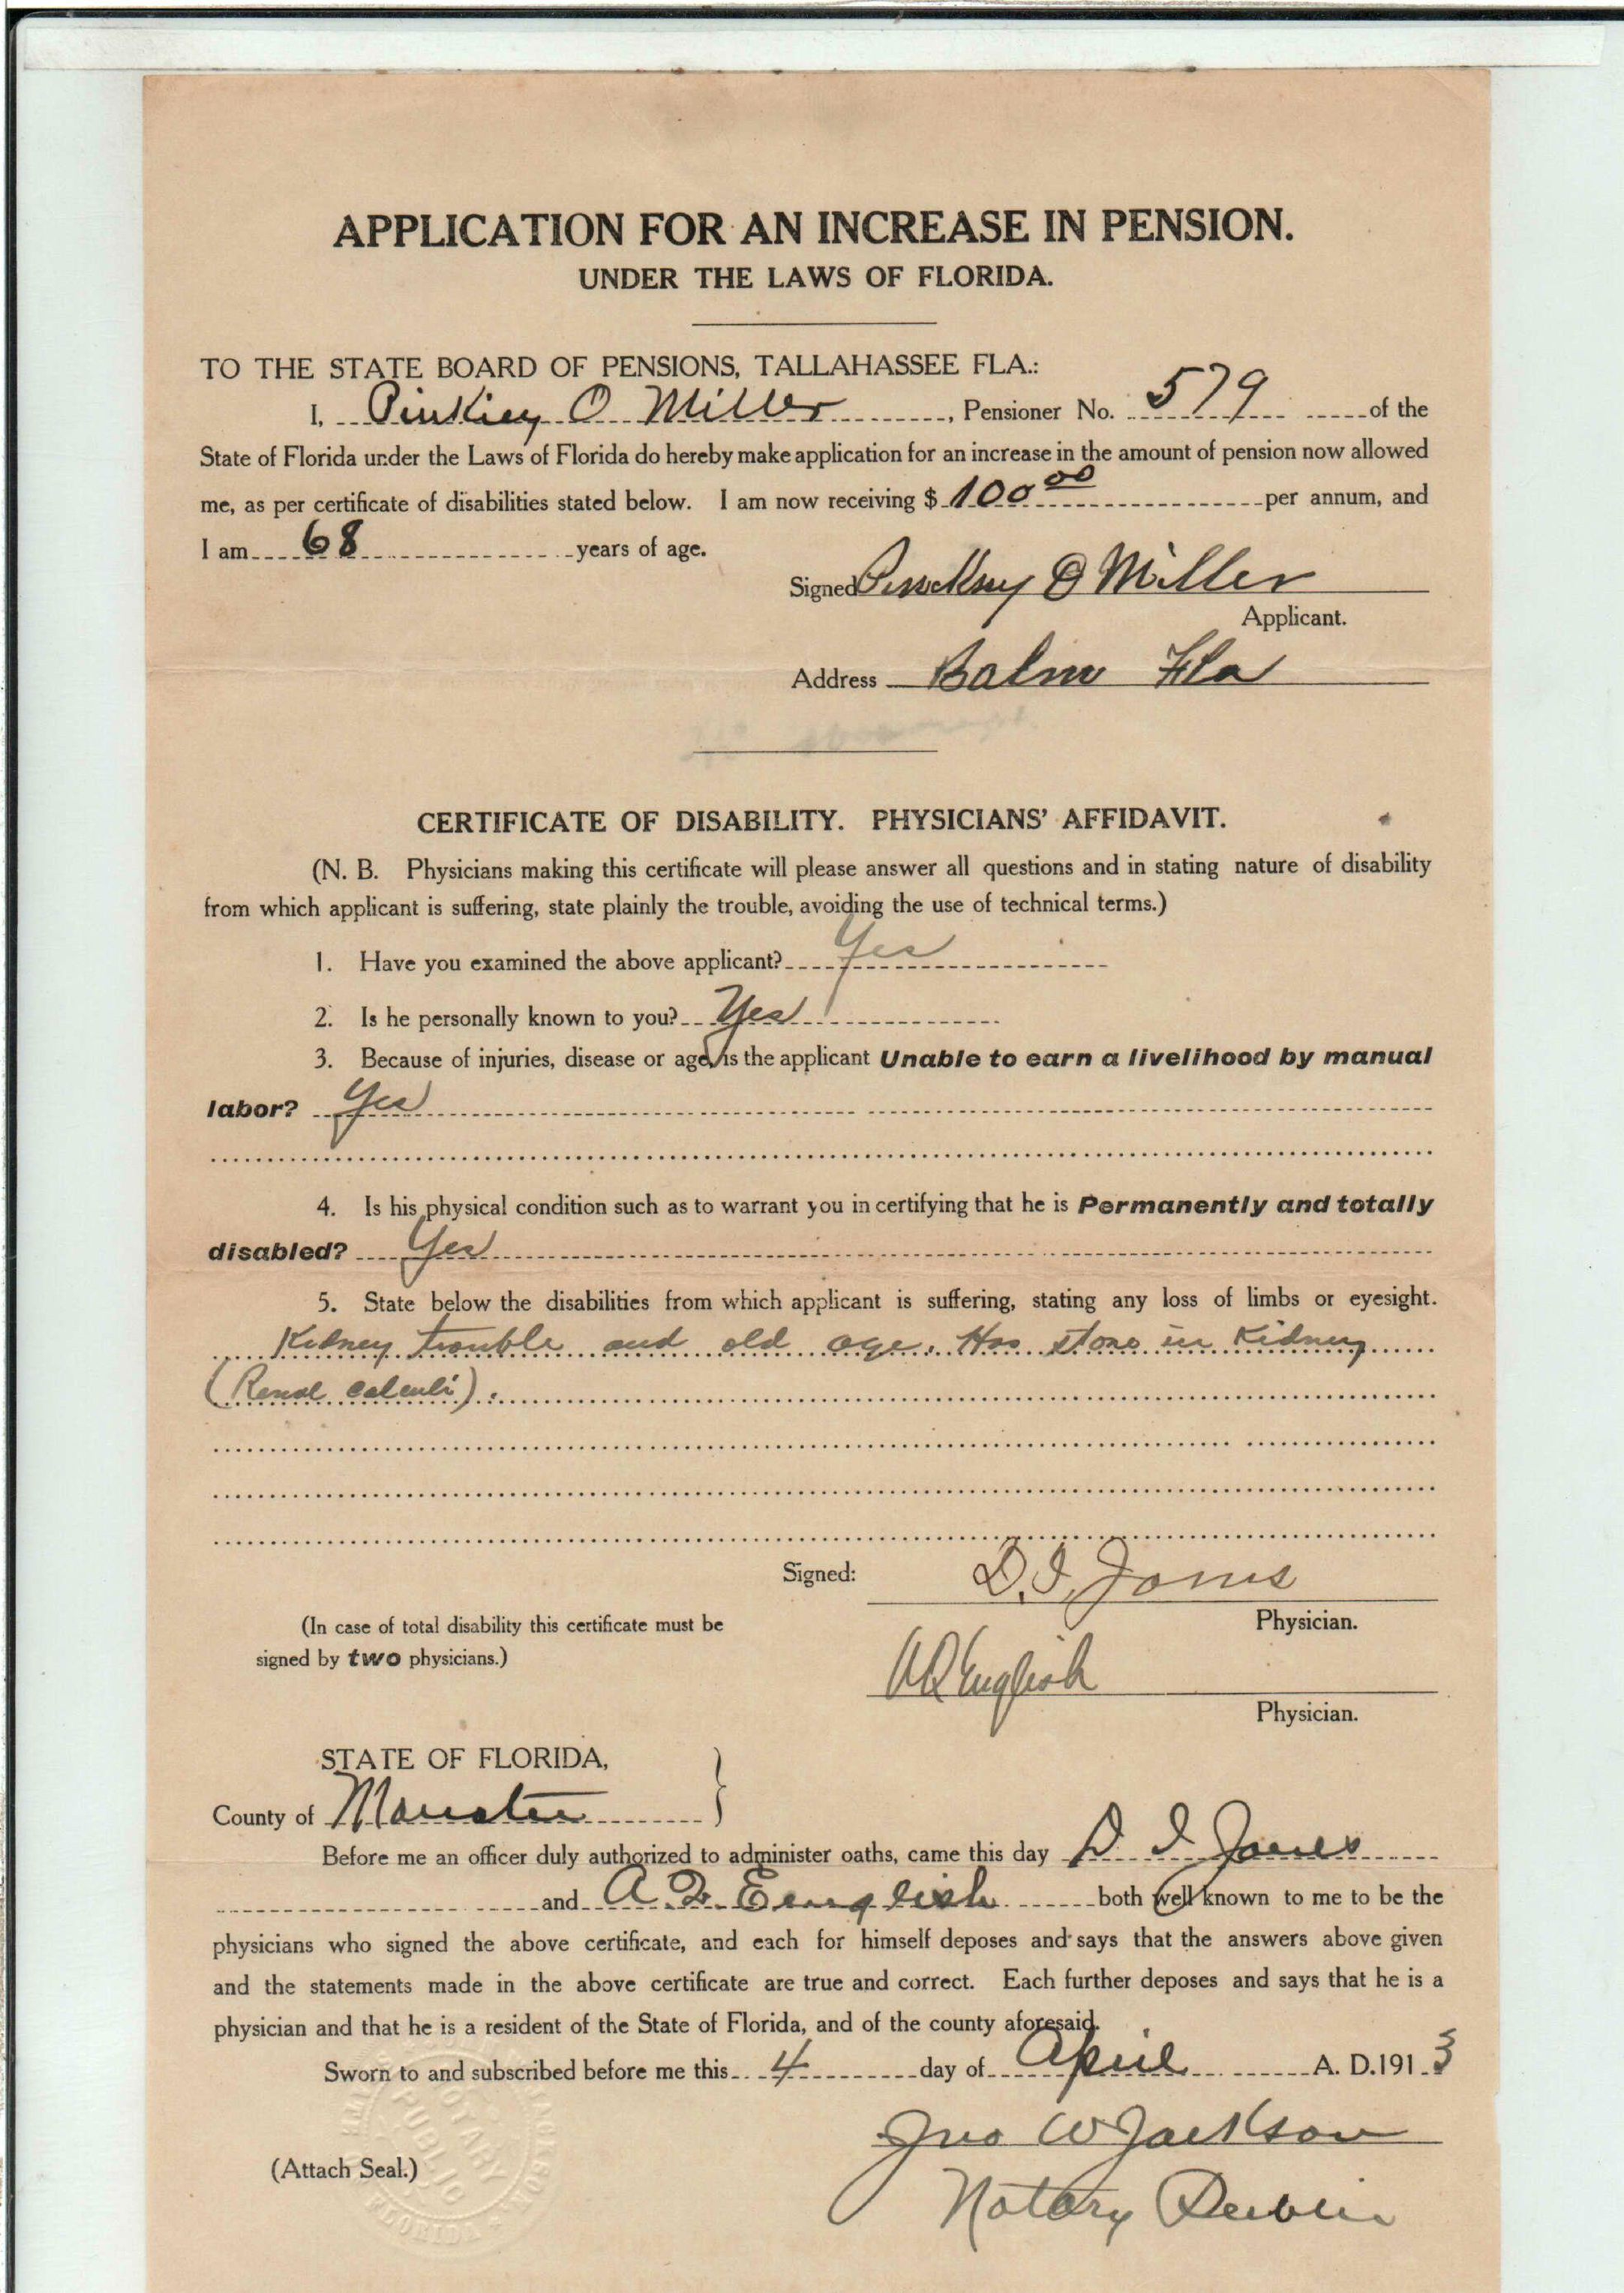 APPLICATION FOR AN INCREASE IN PENSION.
UNDER THE LAWS OF FLORIDA.
TO THE STATE BOARD OF PENSIONS, TALLAHASSEE FLA.:
I, Pinkiey O Miller, Pensioner No. 579 of the
State of Florida under the Laws of Florida do hereby make application for an increase in the amount of pension now allowed
me, as per certificate of disabilities stated below. I am now receiving $ 100 00 per annum, and
I am 68 years of age.
Signed Pinckny O Miller
Applicant.
Address Balm Fla
CERTIFICATE OF DISABILITY. PHYSICIANS' AFFIDAVIT.
(N. B. Physicians making this certificate will please answer all questions and in stating nature of disability
from which applicant is suffering, state plainly the trouble, avoiding the use of technical terms.)
1. Have you examined the above applicant? Yes
2. Is he personally known to you? Yes
3. Because of injuries, disease or age, is the applicant Unable to earn a livelihood by manual
labor? Yes
4. Is his physical condition such as to warrant you in certifying that he is Permanently and totally
disabled? Yes
5. State below the disabilities from which applicant is suffering, stating any loss of limbs or eyesight.
Kidney trouble and old age. Has stone in Kidney
(Renal calculi).
Signed: D. I. Jones
Physician.
(In case of total disability this certificate must be
signed by two physicians.)
English
Physician.
STATE OF FLORIDA,
County of Manatee }
Before me an officer duly authorized to administer oaths, came this day D. I Jones
and A. Eenglish both well known to me to be the
physicians who signed the above certificate, and each for himself deposes and says that the answers above given
and the statements made in the above certificate are true and correct. Each further deposes and says that he is a
physician and that he is a resident of the State of Florida, and of the county aforesaid.
Sworn to and subscribed before me this 4 day of April A. D. 1913
Jno W Jackson
(Attach Seal.)
NOTARY PUBLIC
FLORIDA
Notary